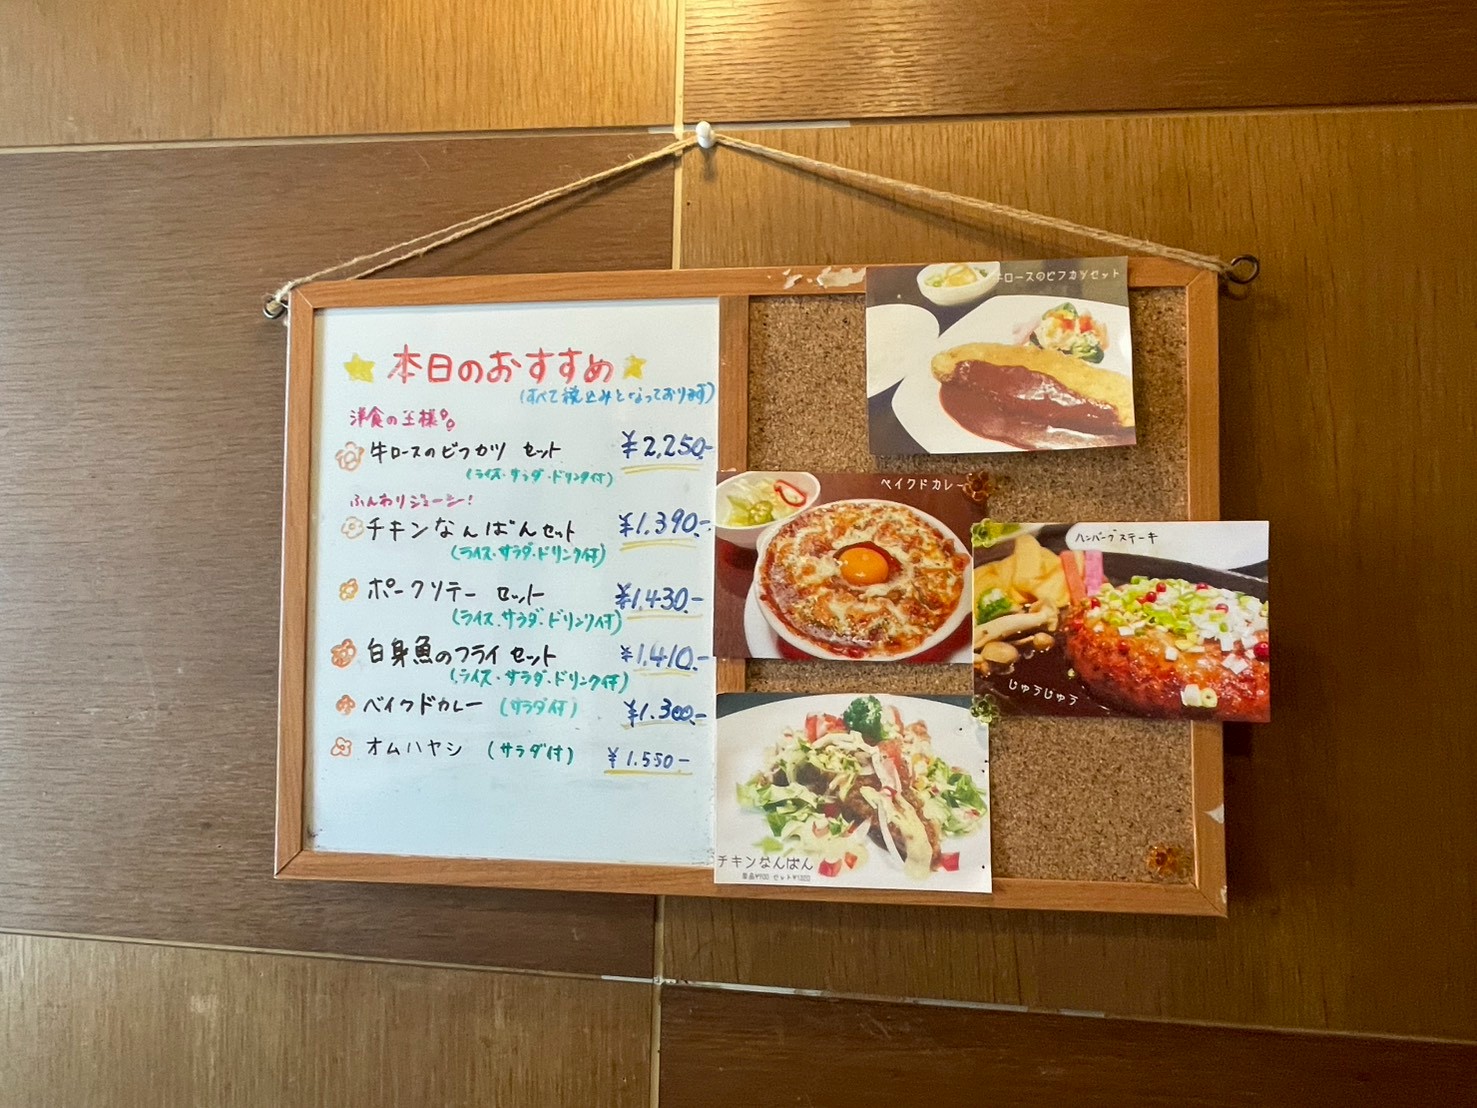 本日のおすすめ
(すべて税込みとなっております)
洋食の王様!!
牛ロースのビフカツ セット ¥2,250-
(ライス・サラダ・ドリンク付)
ふんわりジューシー!
チキンなんばんセット ¥1.390-
(ライス・サラダ・ドリンク付)
ポークソテー セット ¥1,430-
(ライス・サラダ・ドリンク付)
白身魚のフライ セット ¥1,410-
(ライス・サラダ・ドリンク付)
ベイクドカレー (サラダ付) ¥1.300-
オムハヤシ (サラダ付) ¥1.550-
牛ロースのビフカツセット
ベイクドカレー
ハンバーグステーキ
じゅうじゅう
チキンなんばん